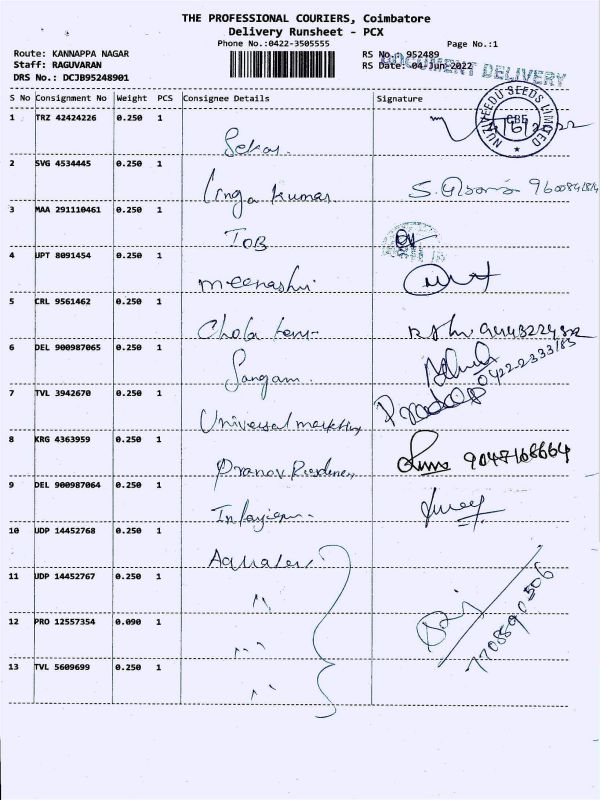 THE PROFESSIONAL COURIERS, Coimbatore
Delivery Runsheet - PCX
Phone No.:0422-3505555
Page No.:1
Route: KANNAPPA NAGAR
RS No.: 952489
Staff: RAGUVARAN
RS Date: 04-Jun-2022
DRS No.: DCJB95248901
DOCUMENT DELIVERY
S No Consignment No Weight PCS Consignee Details Signature
NUZIVEEDU SEEDS LIMITED
CBE
1 TRZ 42424226 0.250 1
Sekar
2 SVG 4534445 0.250 1
Linga kumar
3 MAA 291110461 0.250 1
IOB
4 UPT 8091454 0.250 1
meenashi
5 CRL 9561462 0.250 1
Chola
6 DEL 900987065 0.250 1
Sangam
7 TVL 3942670 0.250 1
Universal marketing
Pradeep
8 KRG 4363959 0.250 1
Pranov
9047168664
9 DEL 900987064 0.250 1
10 UDP 14452768 0.250 1
11 UDP 14452767 0.250 1
"
12 PRO 12557354 0.090 1
"
13 TVL 5609699 0.250 1
"